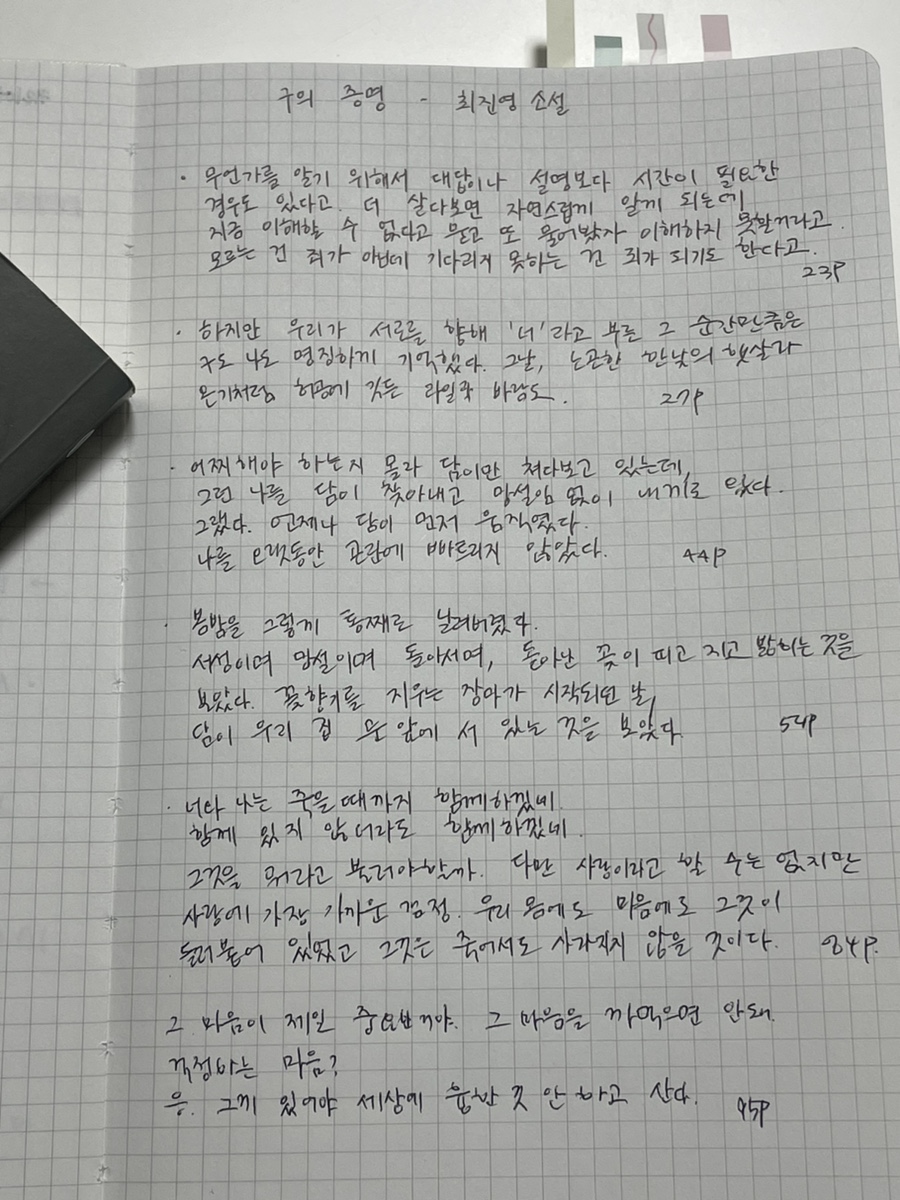 구의 증명 - 최진영 소설
· 무언가를 알기 위해서 대답이나 설명보다 시간이 필요한
경우도 있다고. 더 살다보면 자연스럽게 알게 되는데
지금 이해할 수 없다고 묻고 또 물어봤자 이해하지 못할거라고.
모르는 건 죄가 아닌데 기다리지 못하는 건 죄가 되기도 한다고.
23p
· 하지만 우리가 서로를 향해 '너'라고 부른 그 순간만큼은
구도 나도 명징하게 기억했다. 그날, 노곤한 한낮의 햇살과
온기처럼 허공에 깃든 라일락 바람도.
27p
· 어찌해야 하는지 몰라 담이만 쳐다보고 있는데,
그런 나를 담이 찾아내고 망설임 없이 내게로 왔다.
그랬다. 언제나 담이 먼저 움직였다.
나를 오랫동안 곤란에 빠트리지 않았다.
44p
· 봄밤을 그렇게 통째로 날려버렸다.
서성이며 망설이며 돌아서며, 돋아난 꽃이 피고 지고 밟히는 것을
보았다. 꽃향기를 지우는 장마가 시작되던 날,
담이 우리 집 문 앞에 서 있는 것을 보았다.
54p
· 너와 나는 죽을 때까지 함께하겠네.
함께 있지 않더라도 함께하겠네.
그것을 뭐라고 불러야할까. 다만 사랑이라고 할 수는 없지만
사랑에 가장 가까운 감정. 우리 몸에도 마음에도 그것이
들러붙어 있었고 그것은 죽어서도 사라지지 않을 것이다.
84p.
그 마음이 제일 중요한거야. 그 마음을 까먹으면 안돼.
걱정하는 마음?
응. 그게 있어야 세상에 흉한 짓 안 하고 산다.
95p